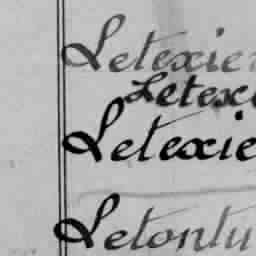 Letexier
Letexc
Letexie
Letontu